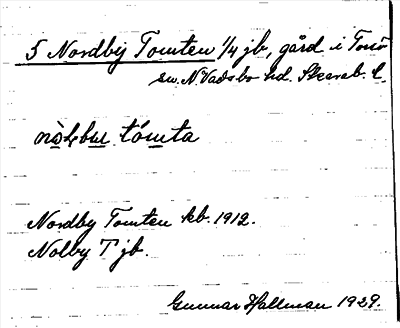 5 Nordby Tomten 1/4 jb, gård i Torsö
sn. N. Vadsbo hd. Skarab. l.
nòḷbu tómta
Nordby Tomten kb. 1912.
Nolby T jb.
Gunnar Hallman 1929.